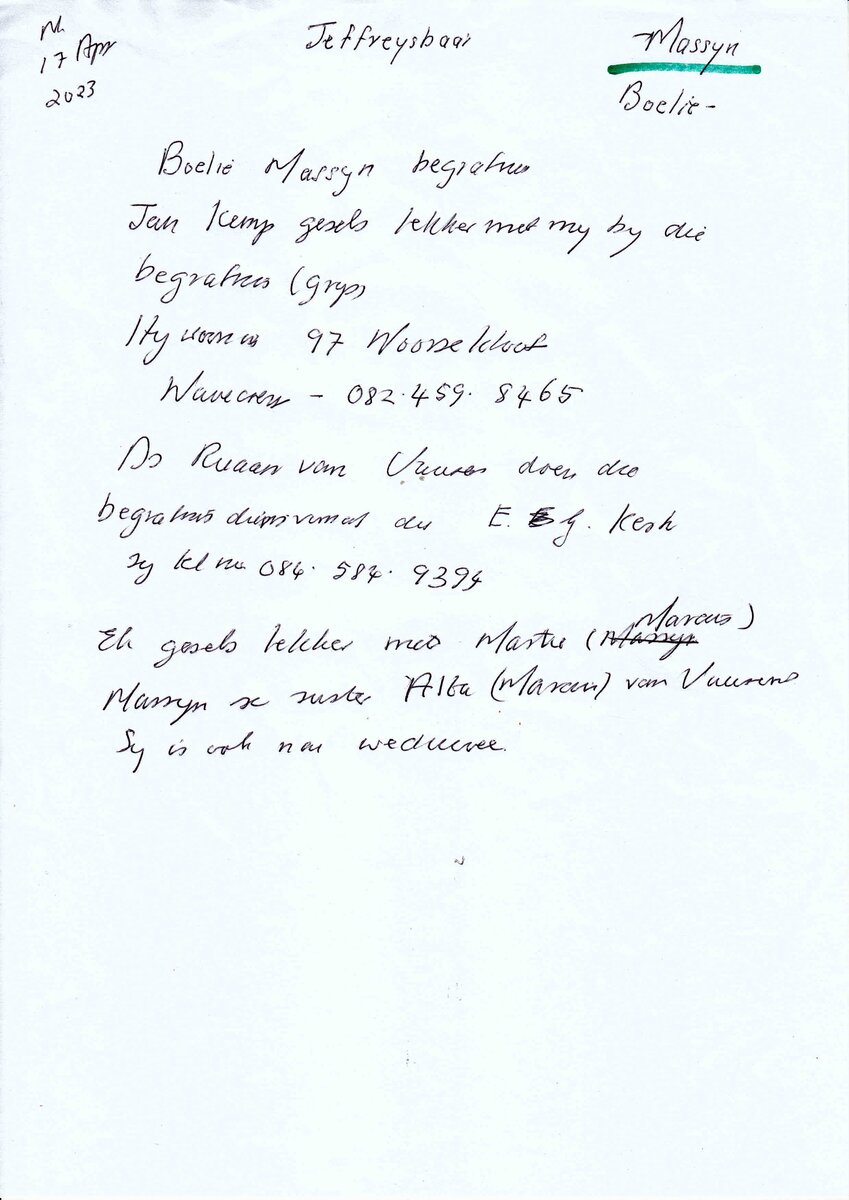 17 Apr
2023
Jeffreysbaai
Massyn
Boelie -
Boelie Massyn begrafnis
Jan Kemp gesels lekker met my by die
begrafnis (grys)
Hy woon in 97 Woosekloof
Wavecrest - 082.459.8465
Ds Ruaan van Vuuren doen die
begrafnis diens vanaf die E. G. Kerk
sy sel nr 084.584.9394
Ek gesels lekker met Martie (Marais)
Massyn se suster Alta (Marais) van Vuuren
Sy is ook nou weduwee.